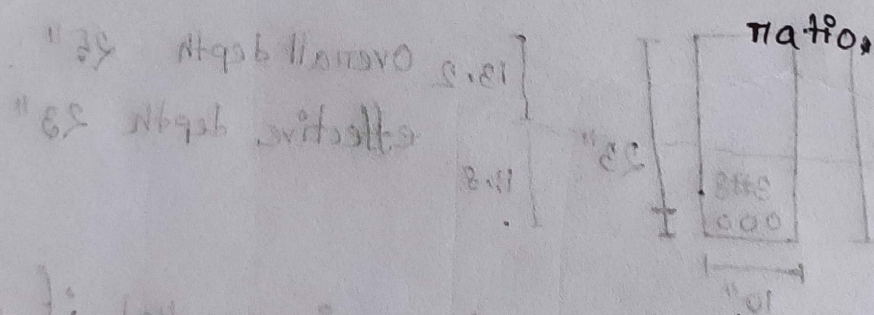 ratio,
overall depth 25"
13.2
effective depth 23"
23"
11.8
3#8
10"